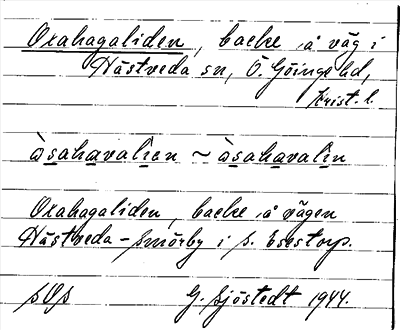 Oxahagaliden, backe å väg i
Hästveda sn, Ö. Göinge hd,
Krist. l.
òsahavalien ~ òsahavalin
Oxahagaliden, backe å vägen
Hästveda - Smörby i s. Esestorp.
SOS G. Sjöstedt 1944.